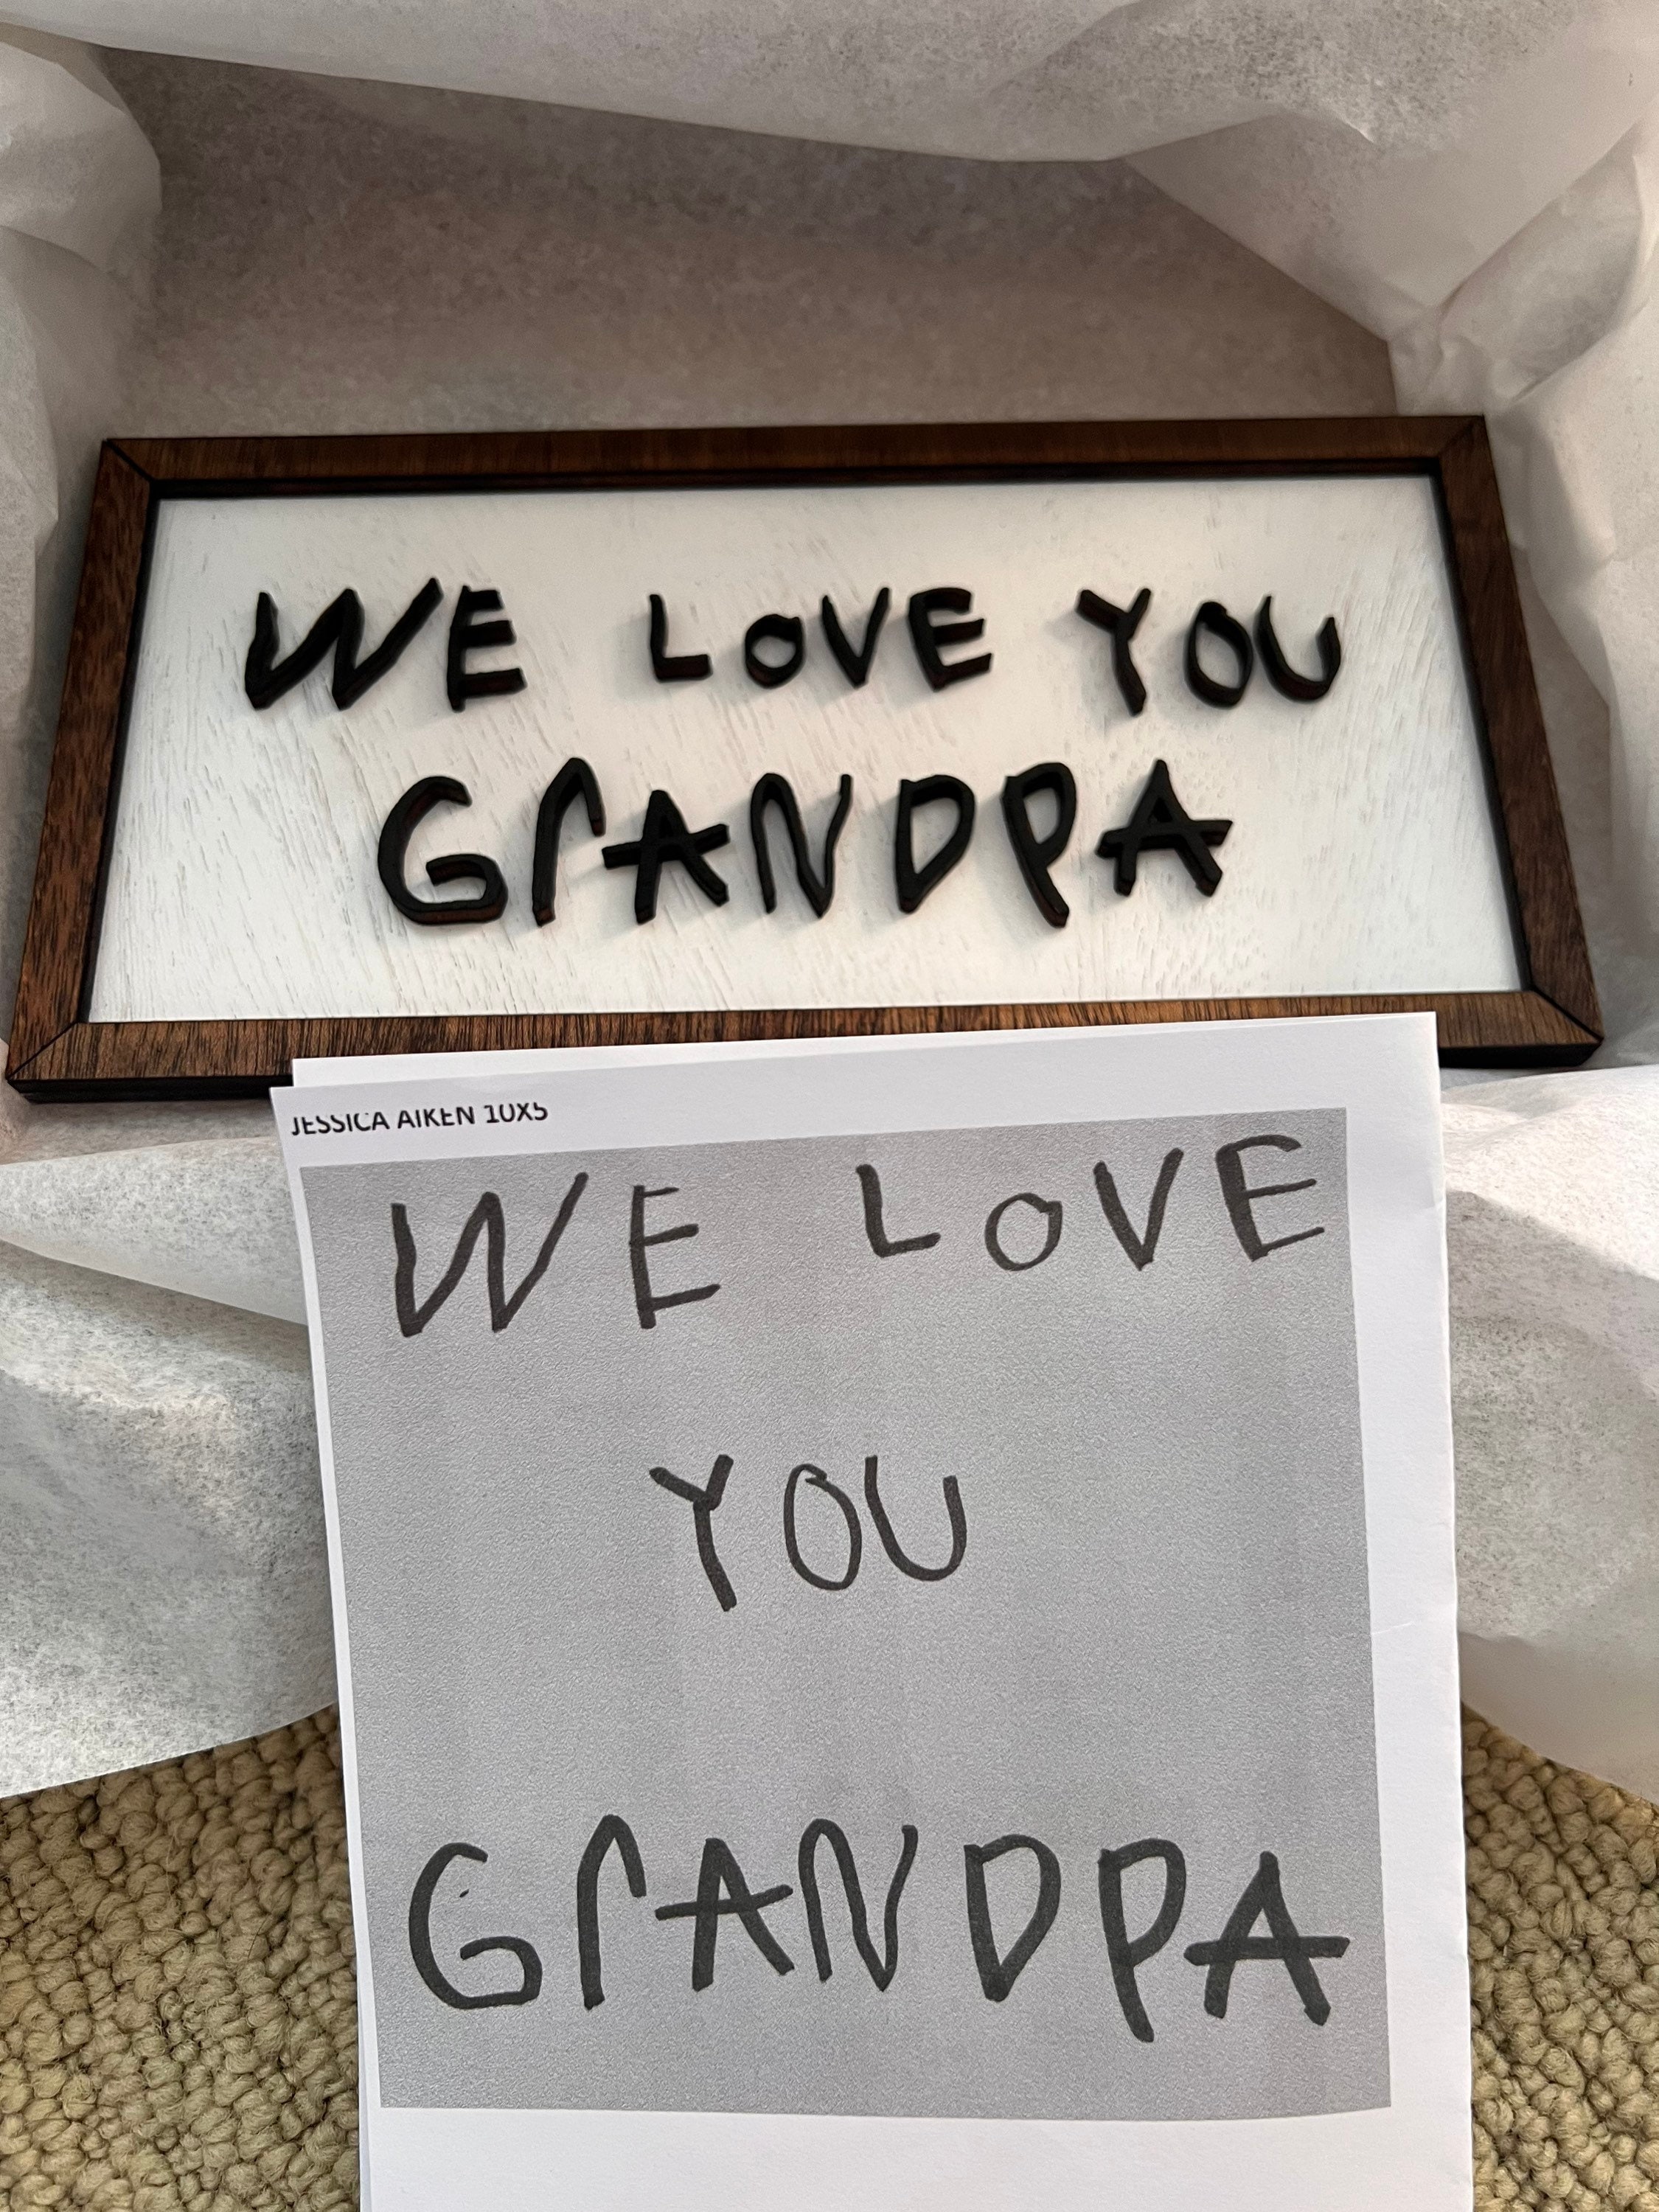 WE LOVE YOU
GrANDPA
JESSICA AIKEN 10X5
WE LOVE
YOU
GrANDPA